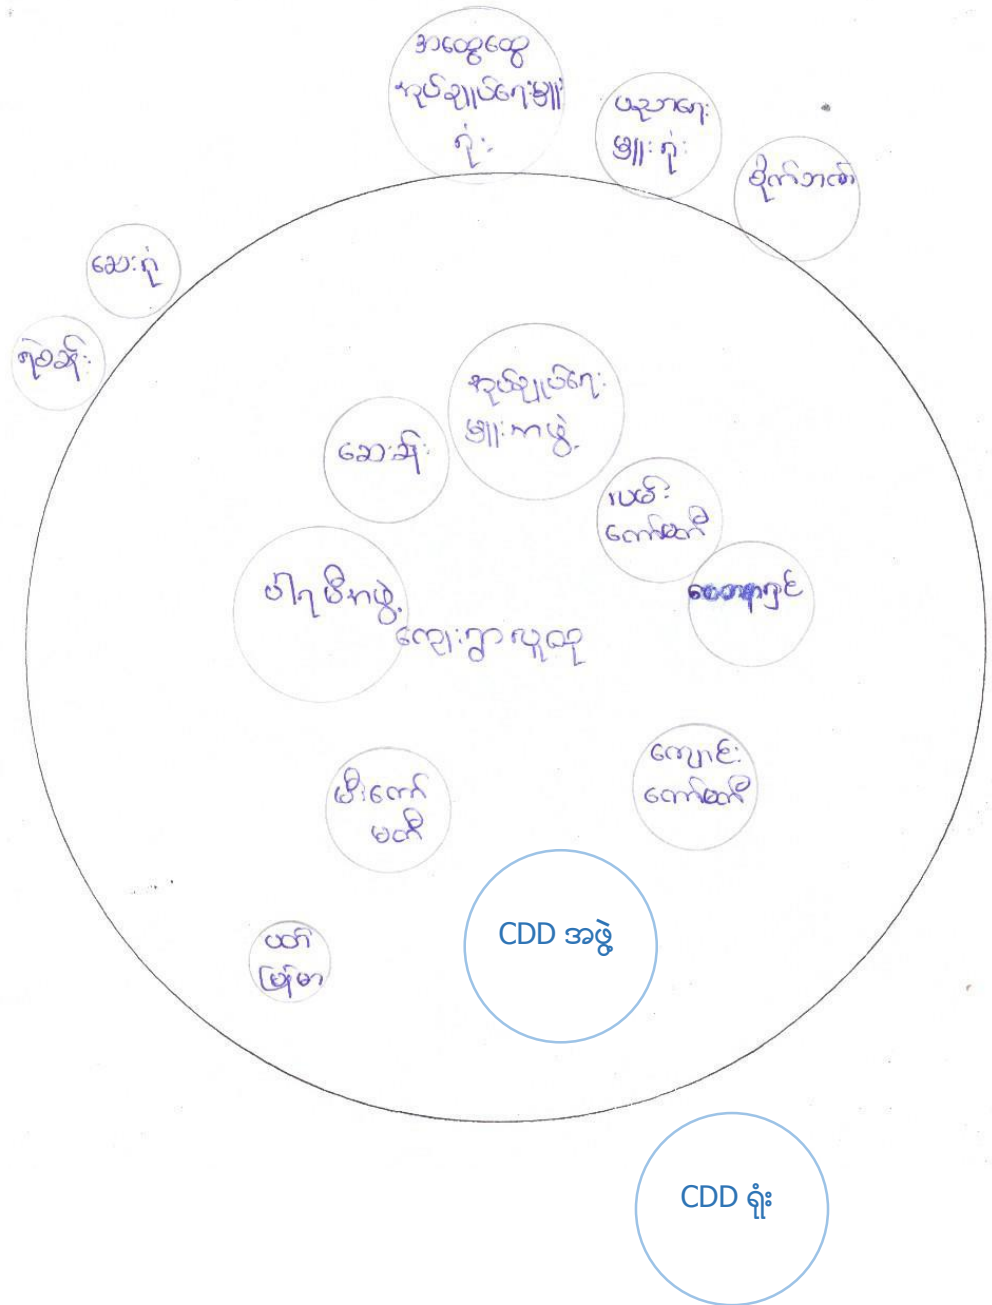 အထွေထွေ
အုပ်ချုပ်ရေးမှူး
ရုံး
ပညာရေး
မှူးရုံး
စိုက်ဘဏ်
ဆေးရုံ
ရဲစခန်း
အုပ်ချုပ်ရေး
မှူးအဖွဲ့
ဆေးခန်း
လမ်း
ကော်မတီ
စေတနာရှင်
ပါရမီအဖွဲ့
ကျေးရွာလူထု
ကျောင်း
ကော်မတီ
မီးကော်
မတီ
CDD အဖွဲ့
ပတ်
မြန်မာ
CDD ရုံး